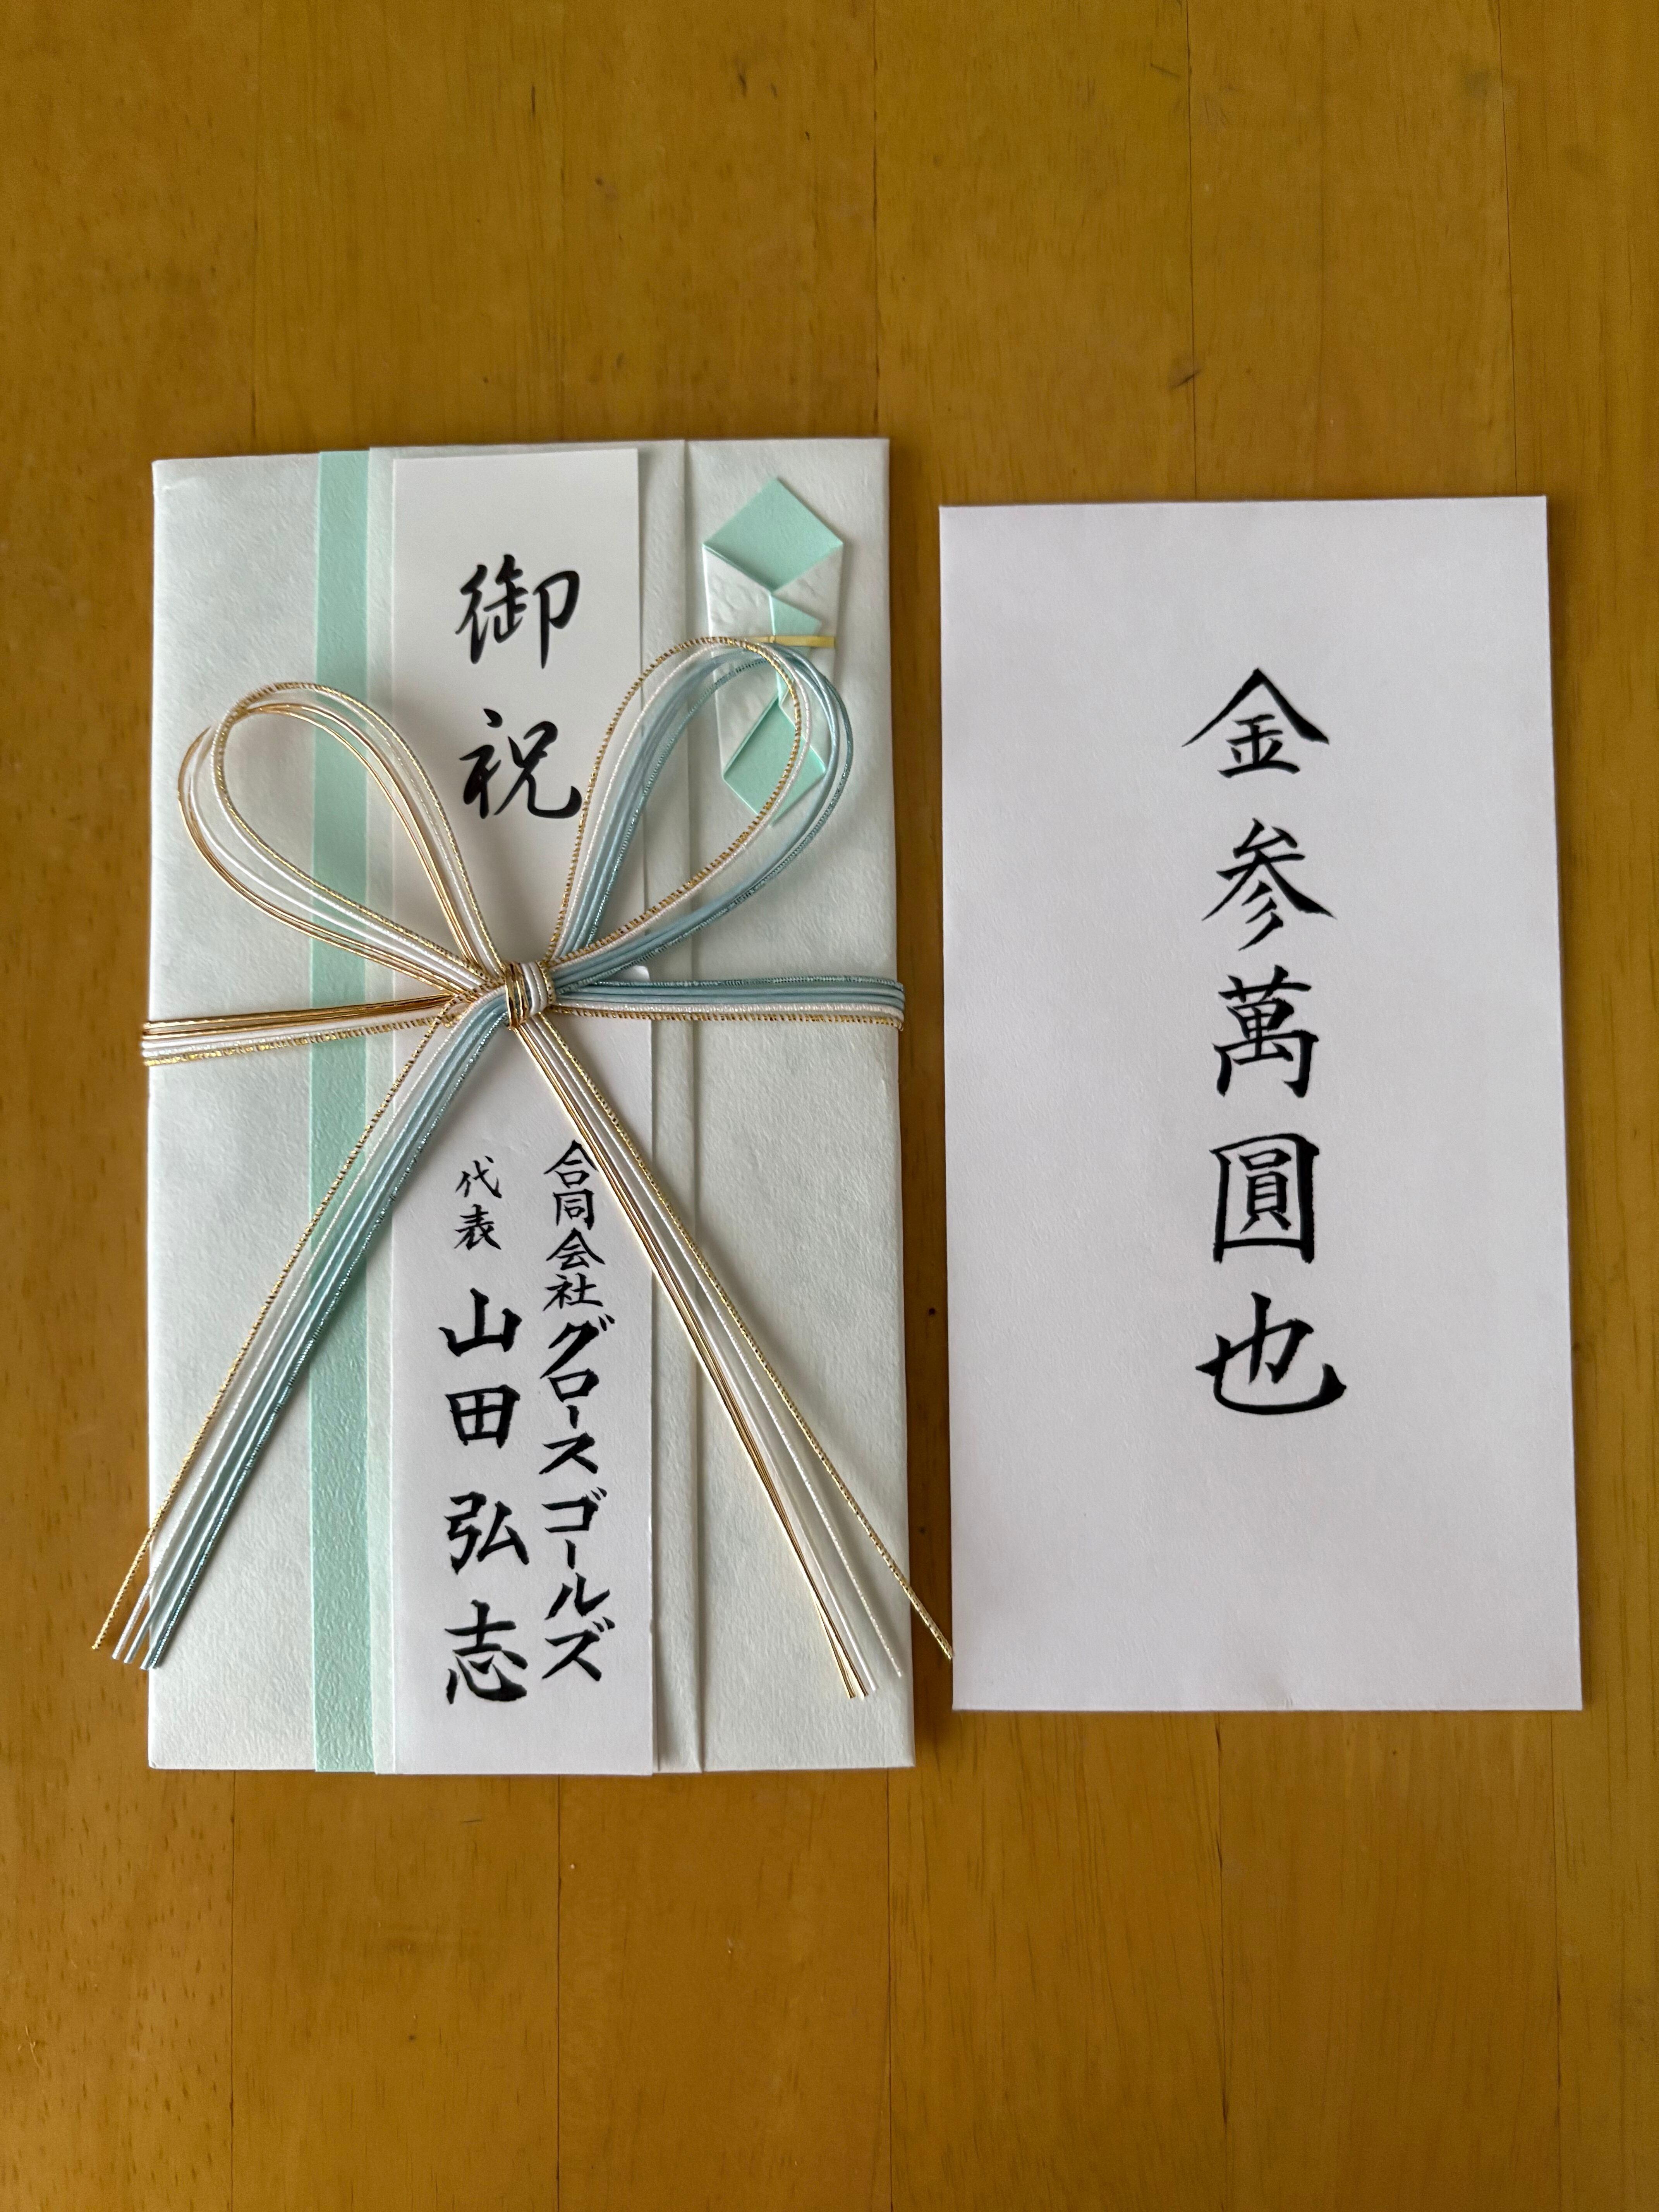 御祝
合同会社グロースゴールズ
代表 山田弘志
金参萬圓也